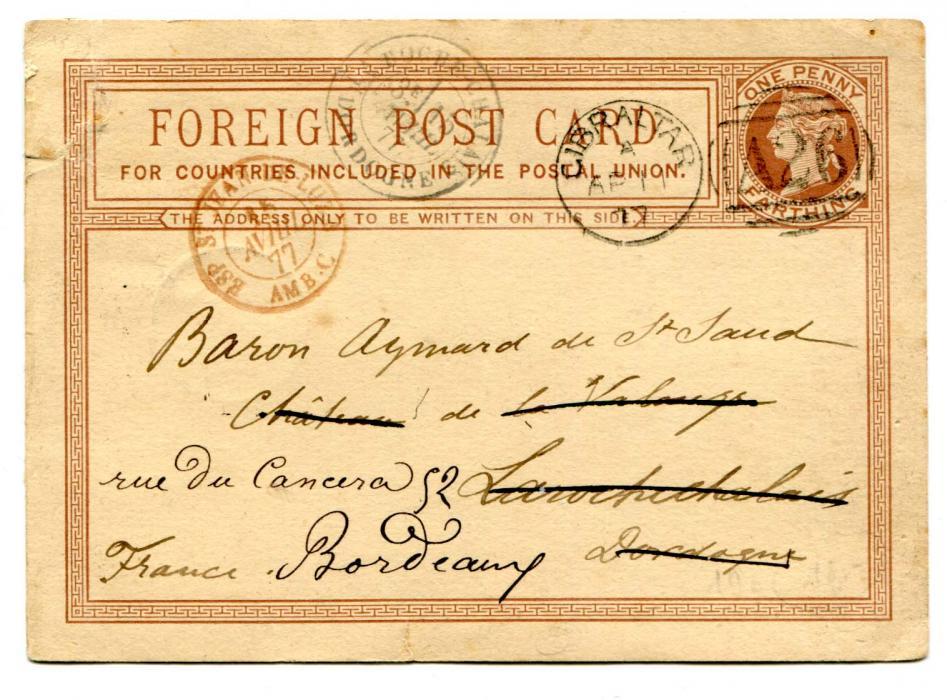 ONE PENNY
FARTHING
FOREIGN POST CARD
FOR COUNTRIES INCLUDED IN THE POSTAL UNION.
THE ADDRESS ONLY TO BE WRITTEN ON THIS SIDE.
GIBRALTAR
A
AP 11
77
A26
AVRIL
77
AMB. C
ESP
Baron Aymard de St Saud
Château de la Valouze
rue du Cancera 52 Larochechalais
France. Bordeaux Dordogne